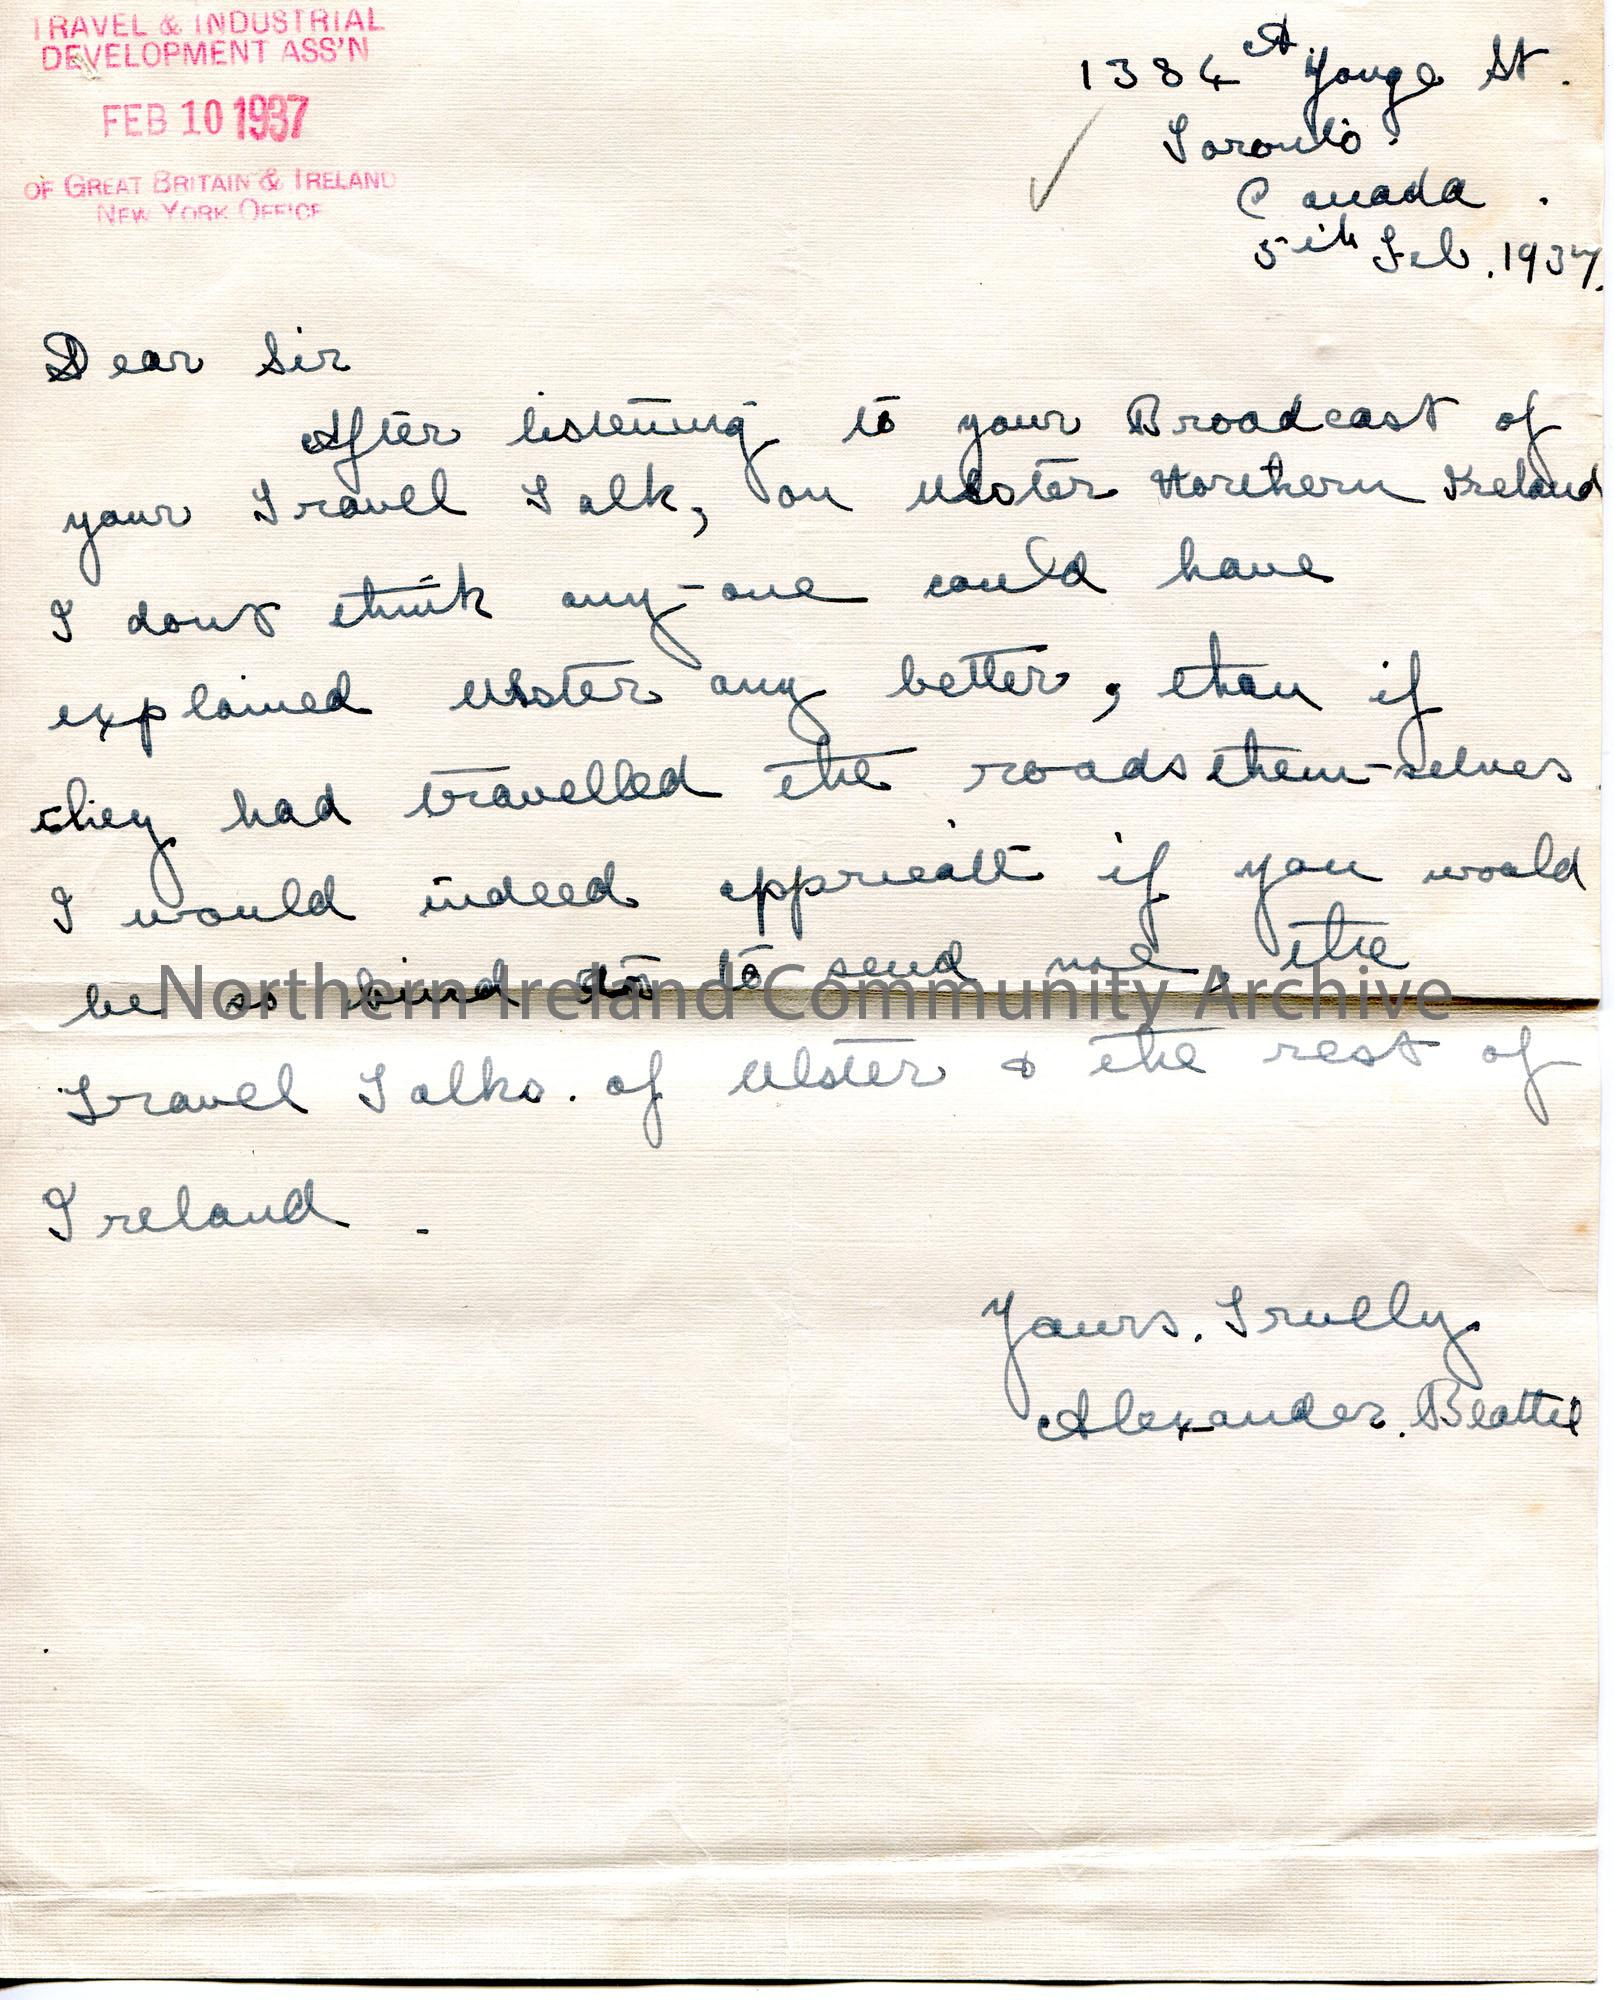 TRAVEL & INDUSTRIAL
DEVELOPMENT ASS'N
FEB 10 1937
OF GREAT BRITAIN & IRELAND
NEW YORK OFFICE
1384 A Yonge St.
Toronto.
Canada.
5th Feb. 1937.
Dear Sir
After listening to your Broadcast of
your Travel Talk, on Ulster Northern Ireland
I dont think any-one could have
explained Ulster any better, than if
they had travelled the roads them-selves.
I would indeed appricate if you would
be so kind as to send me, the
Northern Ireland Community Archive
Travel Talks. of Ulster & the rest of
Ireland.
Yours. Truelly
Alexander. Beattie